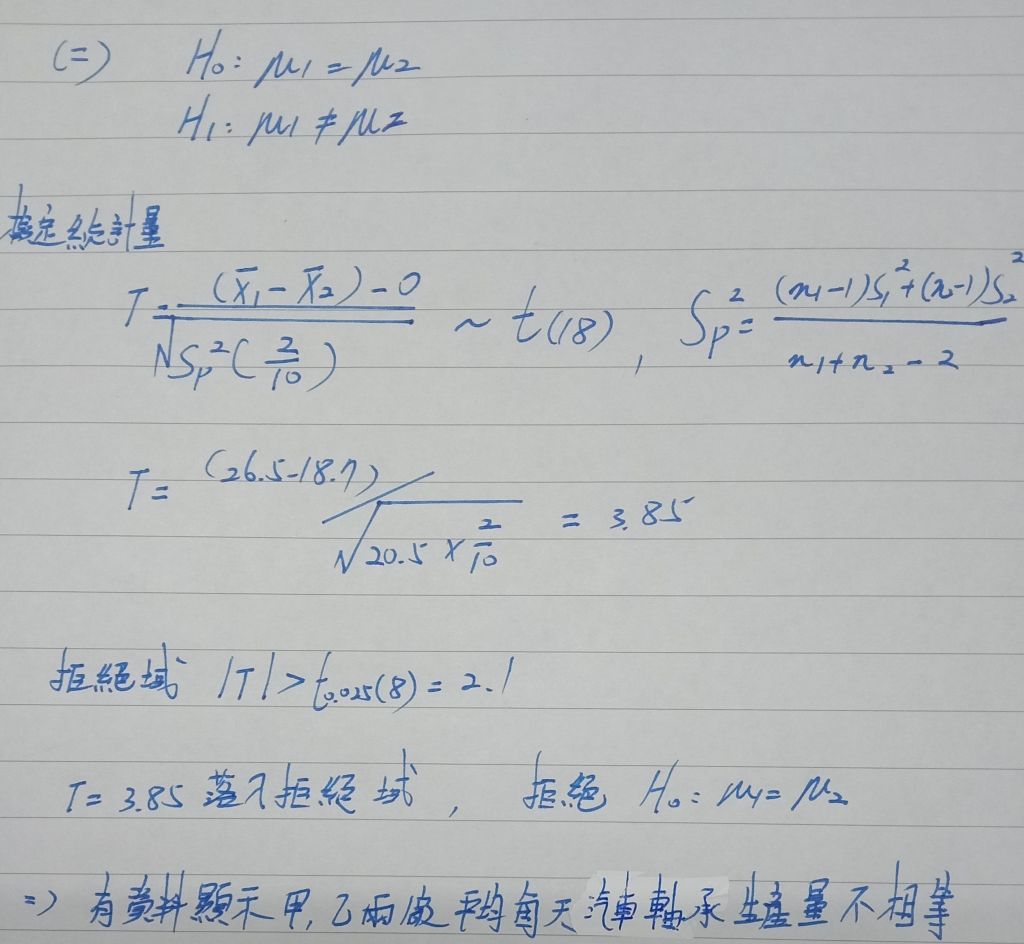 (二) H₀: μ₁ = μ₂
H₁: μ₁ ≠ μ₂
檢定統計量
T = (X̄₁ - X̄₂) - 0 / √Sp²(2/10) ~ t(18), Sp² = (n₁-1)S₁² + (n₂-1)S₂² / n₁+n₂-2
T = (26.5-18.7) / √20.5 × 2/10 = 3.85
拒絕域 |T| > t₀.₀₂₅(8) = 2.1
T = 3.85 落入拒絕域, 拒絕 H₀: μ₁ = μ₂
=> 有資料顯示甲,乙兩廠平均每天汽車軸承生產量不相等